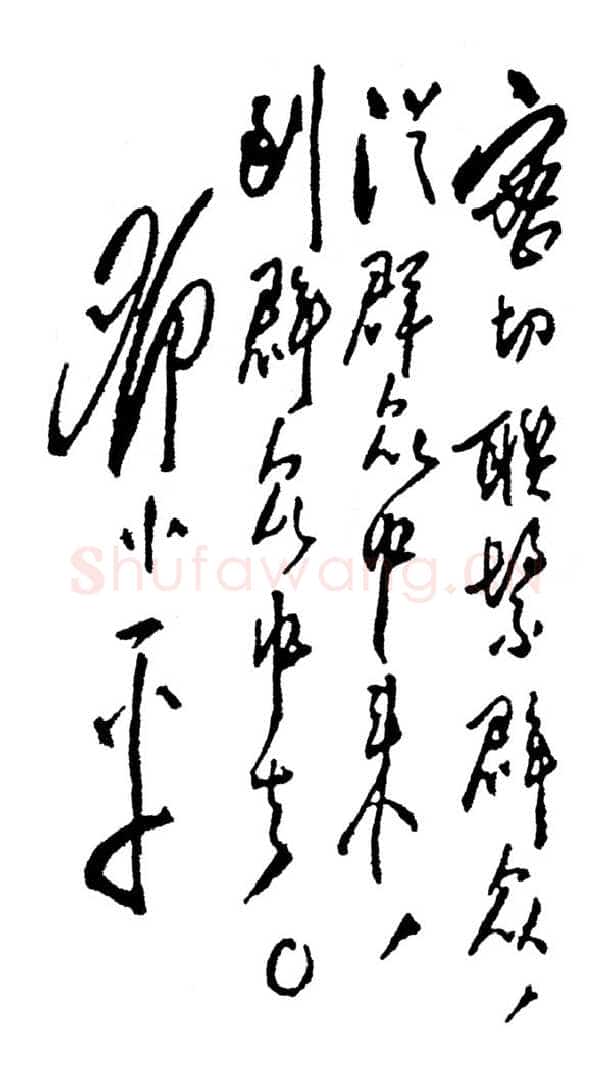 密切联繫群众，
从群众中来，
到群众中去。
邓小平
Shufawang.cn